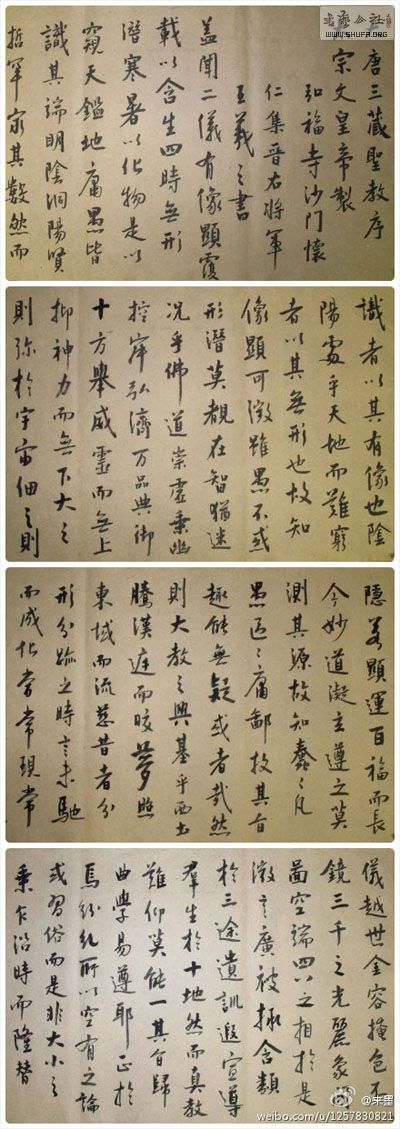 書藝公社
WWW.SHUFA.ORG
唐三藏聖教序
宗文皇帝製
弘福寺沙門懷
仁集晉右將軍
王羲之書
蓋聞二儀有像顯覆
載以含生四時無形
潛寒暑以化物是以
窺天鑑地庸愚皆
識其端明陰洞陽賢
哲罕窮其數然而
識者以其有像也陰
陽處乎天地而難窮
者以其無形也故知
像顯可徵雖愚不惑
形潛莫覩在智猶迷
況乎佛道崇虛乘幽
控寂弘濟万品典御
十方舉威靈而無上
抑神力而無下大之
則弥於宇宙細之則
隱若顯運百福而長
今妙道凝玄遵之莫
測其源故知蠢々凡
愚區々庸鄙投其旨
趣能無疑或者哉然
則大教之興基乎西土
騰漢庭而皎夢照
東域而流慈昔者分
形分跡之時言未馳
而成化當常現常
儀越世金容掩色不
鏡三千之光麗象開
圖空端四八之相於是
微言廣被拯含類
於三途遺訓遐宣導
群生於十地然而真教
難仰莫能一其旨歸
曲學易遵耶正於
焉紛糺所以空有之論
或習俗而是非大小之
乘乍沿時而隆替
weibo.com/u/1257830821